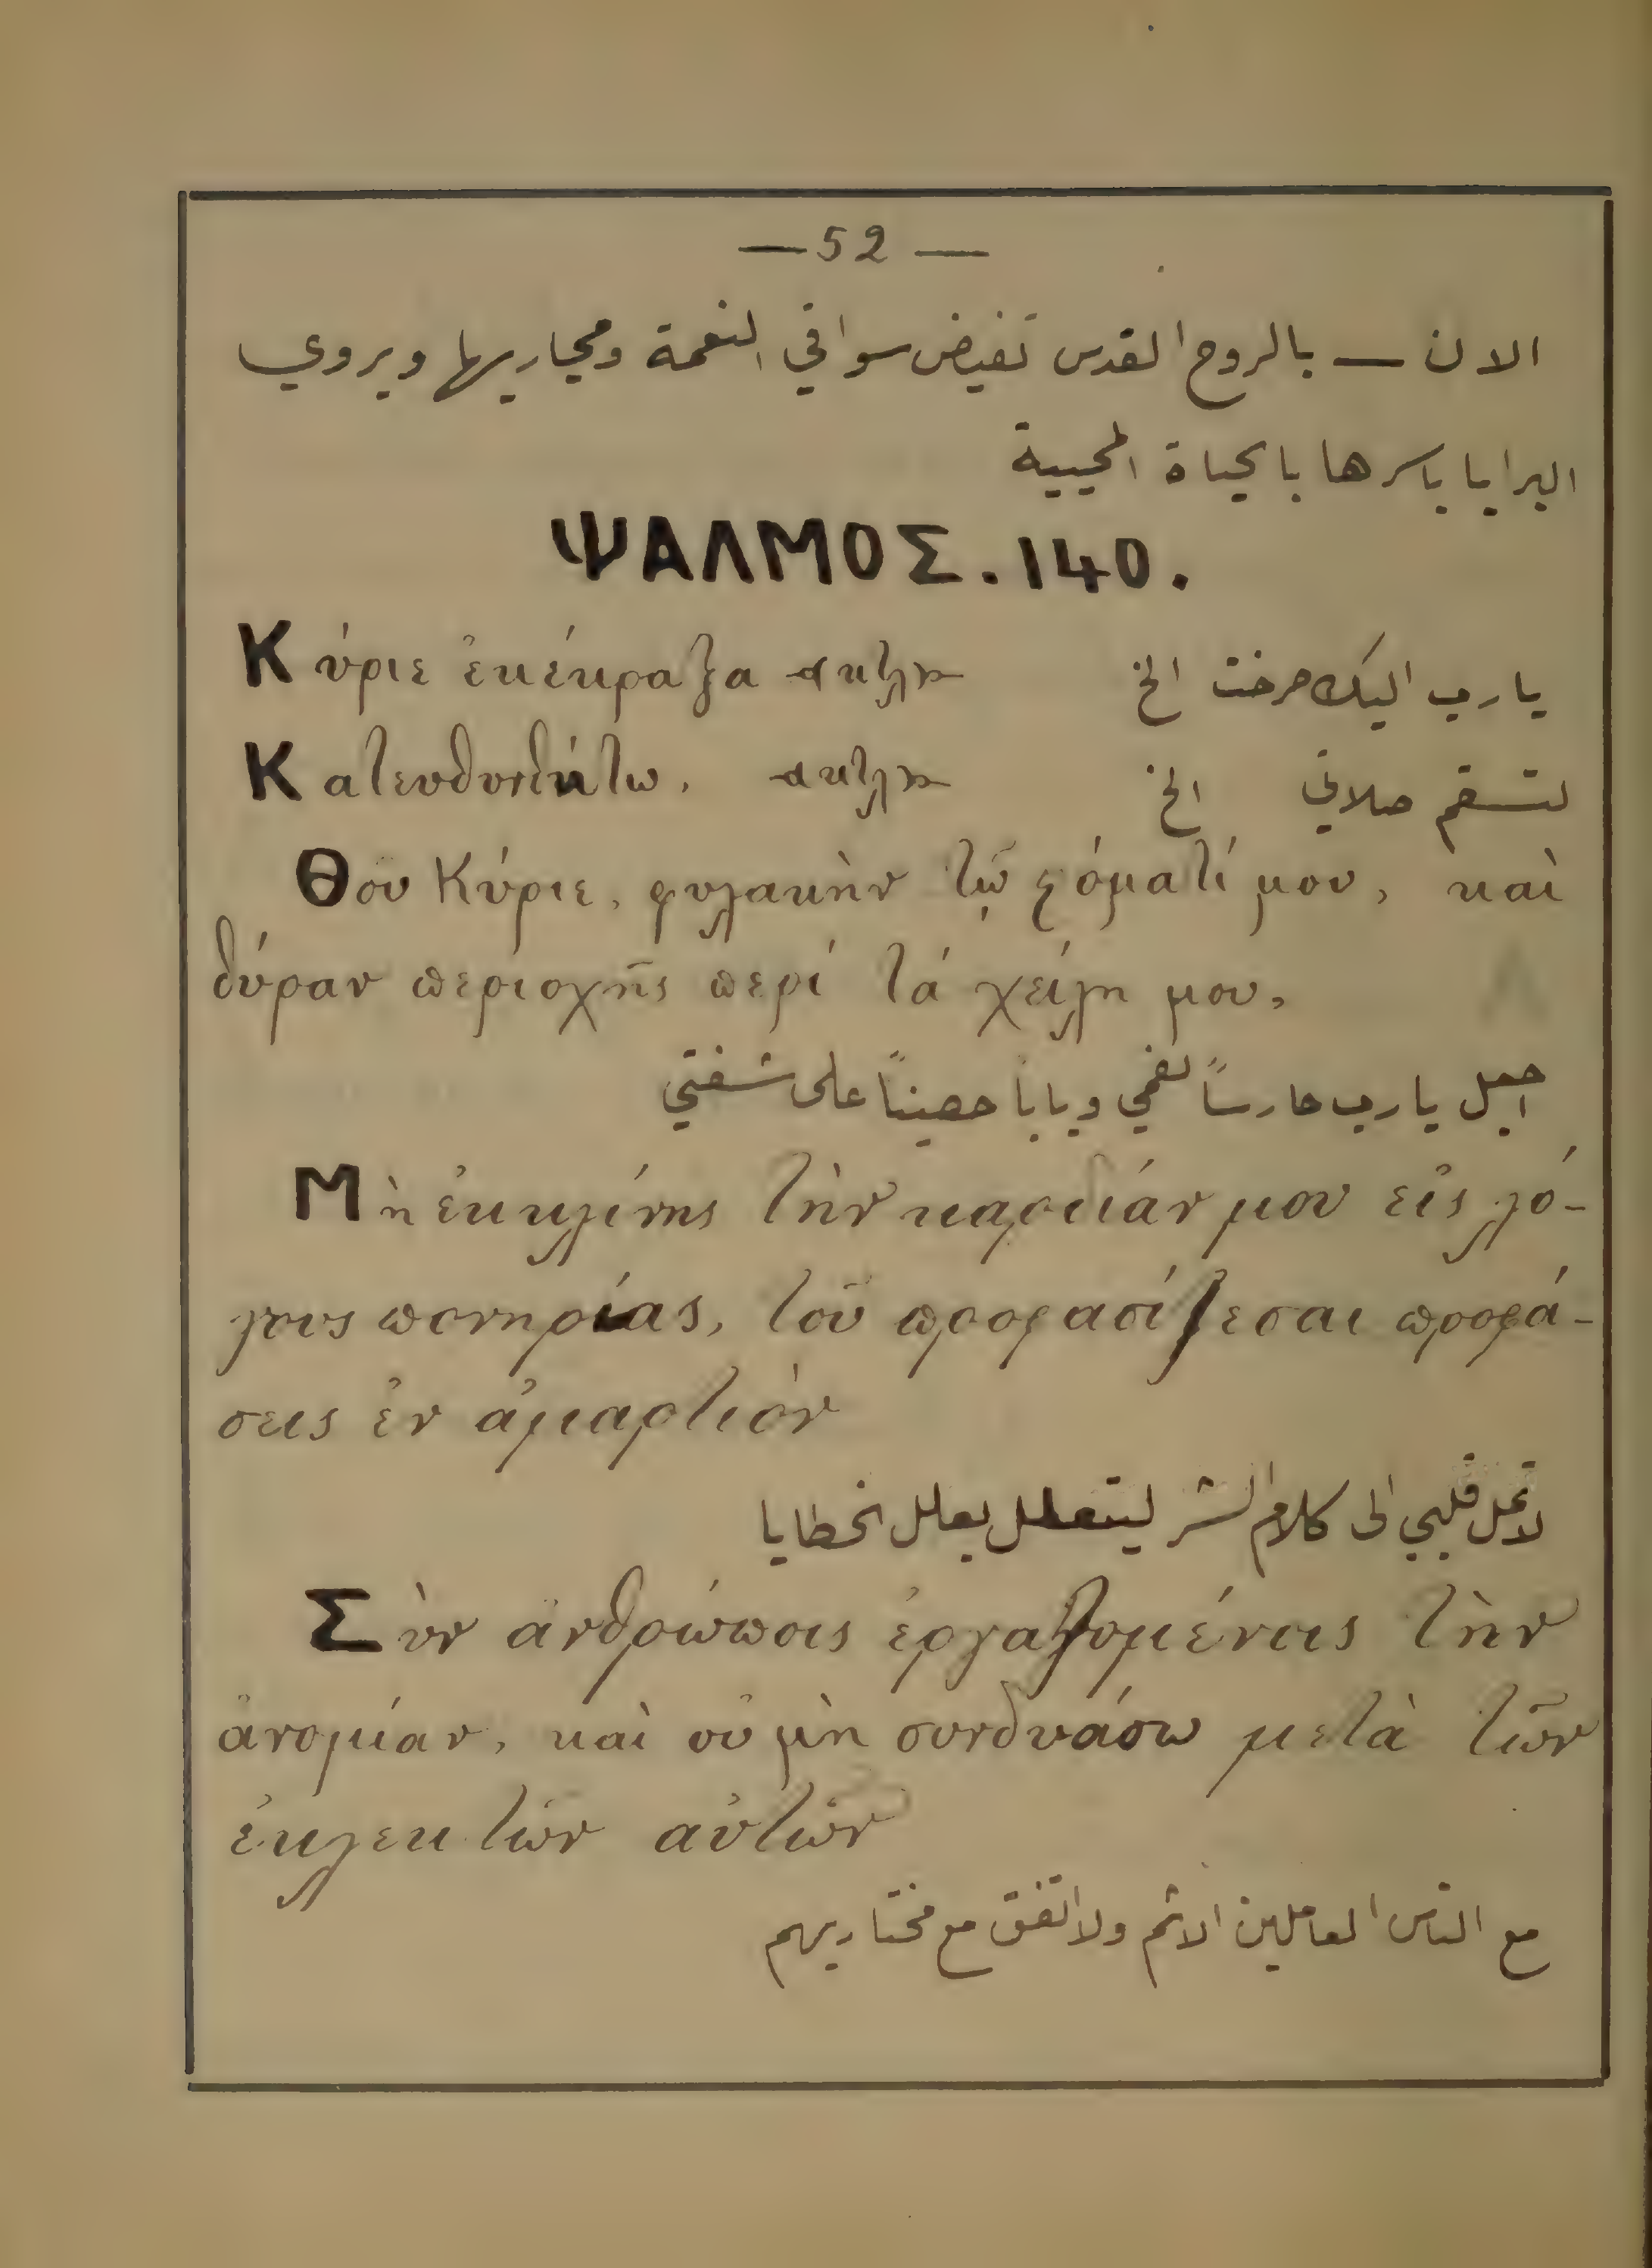 — 52 —
الان — بالروح القدس تفيض سواقي النعمة ومجاريها ويروي
البرايا باسرها بالحياة المحيية
ΨΑΛΜΟΣ. 140.
Κύριε ἐκέκραξα κτλ يارب اليك صرخت الخ
Κατευθυνθήτω, κτλ لتستقم صلاتي الخ
Θου Κύριε, φυλακὴν τῷ ϛόματί μου, καὶ
θύραν περιοχῆς περί τά χείλη μου,
اجعل يارب حارساً لفمي وباباً حصيناً على شفتي
Μὴ ἐκκλίνης τὴν καρδίαν μου εἰς λό-
γους πονηρίας, τοῦ προφασίζεσαι προφά-
σεις ἐν ἁμαρτιὸν
لا تمل قلبي الى كلام الشر ليتعلل بعلل الخطايا
Σὺν ἀνθρώποις ἐργαζομένοις τὴν
ἀνομίαν, καὶ οὐ μὴ συνδυάσω μετὰ τῶν
ἐκλεκτῶν αὐτῶν
مع الناس العاملين الاثم ولا اتفق مع مختاريهم